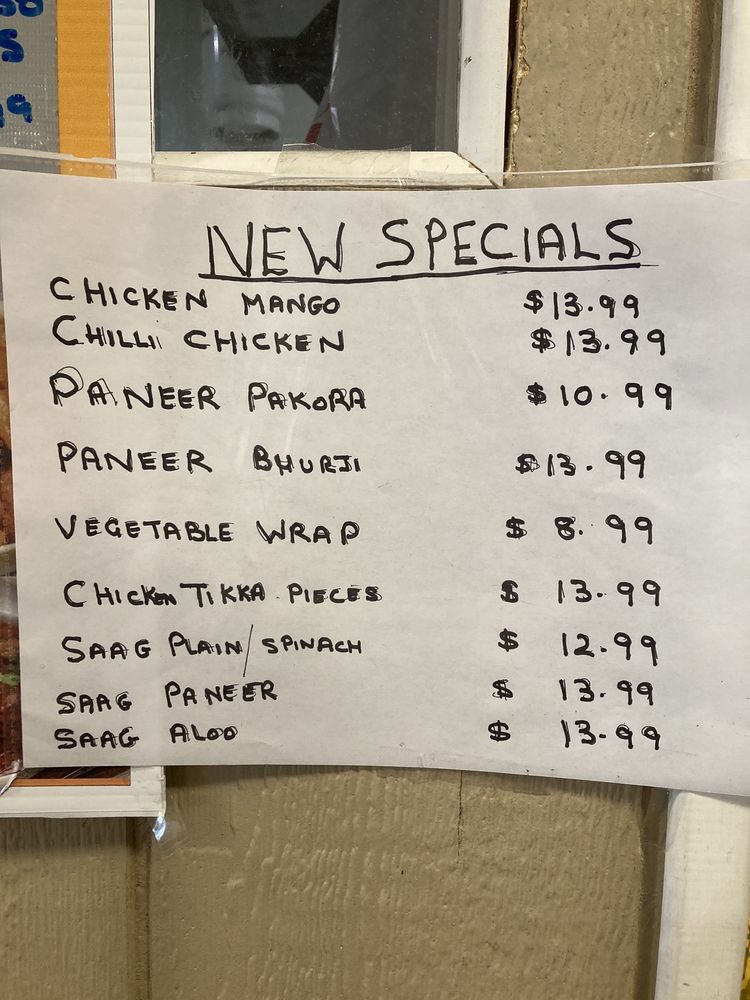 NEW SPECIALS
CHICKEN MANGO $13.99
CHILLI CHICKEN $13.99
PANEER PAKORA $10.99
PANEER BHURJI $13.99
VEGETABLE WRAP $ 8.99
CHICKEN TIKKA PIECES $ 13.99
SAAG PLAIN/SPINACH $ 12.99
SAAG PANEER $ 13.99
SAAG ALOO $ 13.99